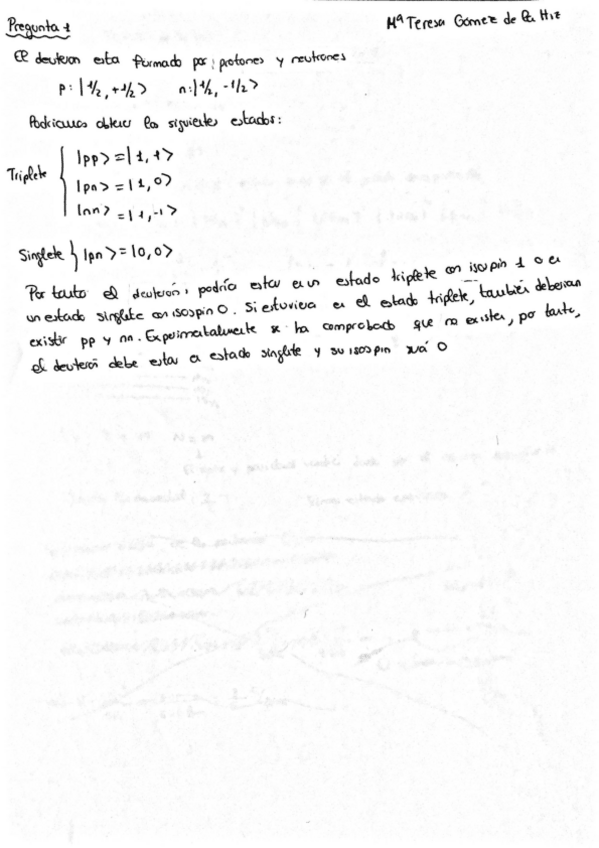 Pregunta 1
Mª Teresa Gómez de la Hiz
El deuteron esta formado por: protones y neutrones
p: |1/2, +1/2> n: |1/2, -1/2>
Podríamos obtener los siguientes estados:
Triplete
|pp> = |1, 1>
|pn> = |1, 0>
|nn> = |1, -1>
Singlete } |pn> = |0, 0>
Por tanto el deuterón, podría estar en un estado triplete con isospin 1 o en
un estado singlete con isospin 0. Si estuviera en el estado triplete, también deberían
existir pp y nn. Experimentalmente se ha comprobado que no existen, por tanto,
el deuterón debe estar en estado singlete y su isospin será 0